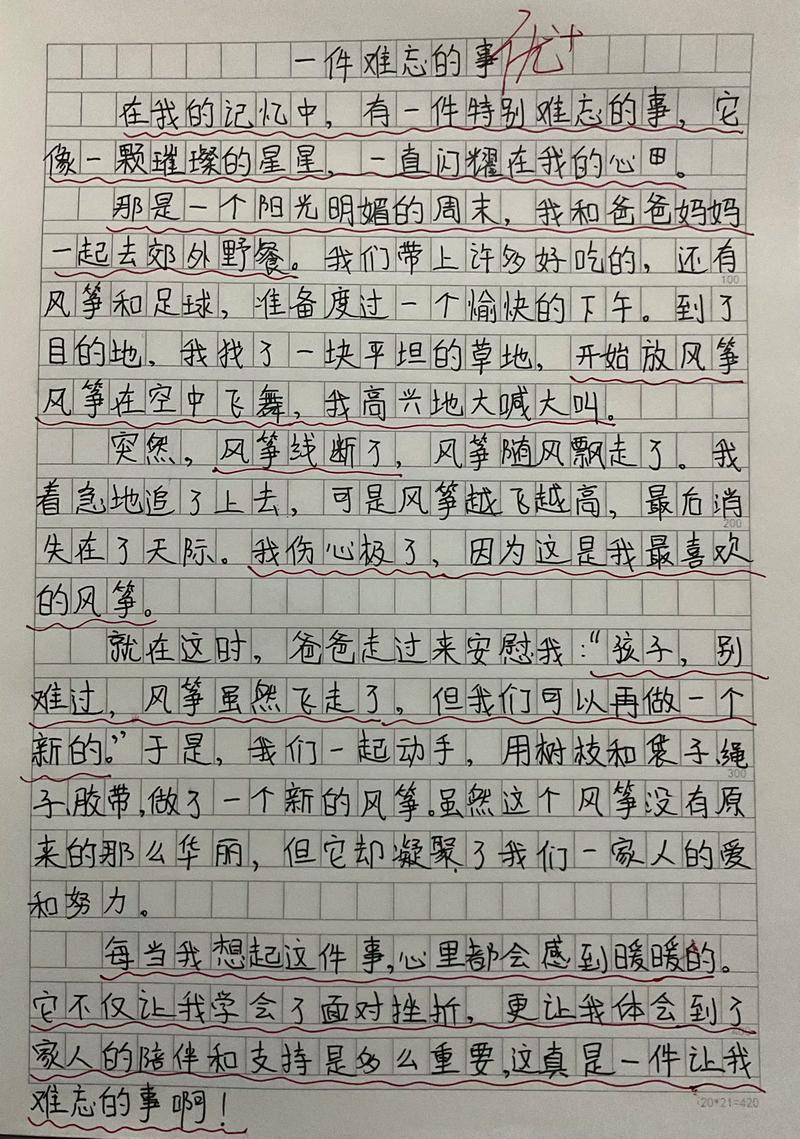 一件难忘的事 优+
在我的记忆中，有一件特别难忘的事，它
像一颗璀璨的星星，一直闪耀在我的心田。
那是一个阳光明媚的周末，我和爸爸妈妈
一起去郊外野餐。我们带上许多好吃的，还有
100
风筝和足球，准备度过一个愉快的下午。到了
目的地，我找了一块平坦的草地，开始放风筝
风筝在空中飞舞，我高兴地大喊大叫。
突然，风筝线断了，风筝随风飘走了。我
着急地追了上去，可是风筝越飞越高，最后消
200
失在了天际。我伤心极了，因为这是我最喜欢
的风筝。
就在这时，爸爸走过来安慰我：“孩子，别
难过，风筝虽然飞走了，但我们可以再做一个
新的。”于是，我们一起动手，用树枝和袋子、绳
300
子、胶带，做了一个新的风筝。虽然这个风筝没有原
来的那么华丽，但它却凝聚了我们一家人的爱
和努力。
每当我想起这件事，心里都会感到暖暖的。
它不仅让我学会了面对挫折，更让我体会到了
家人的陪伴和支持是多么重要，这真是一件让我
20*21=420
难忘的事啊！